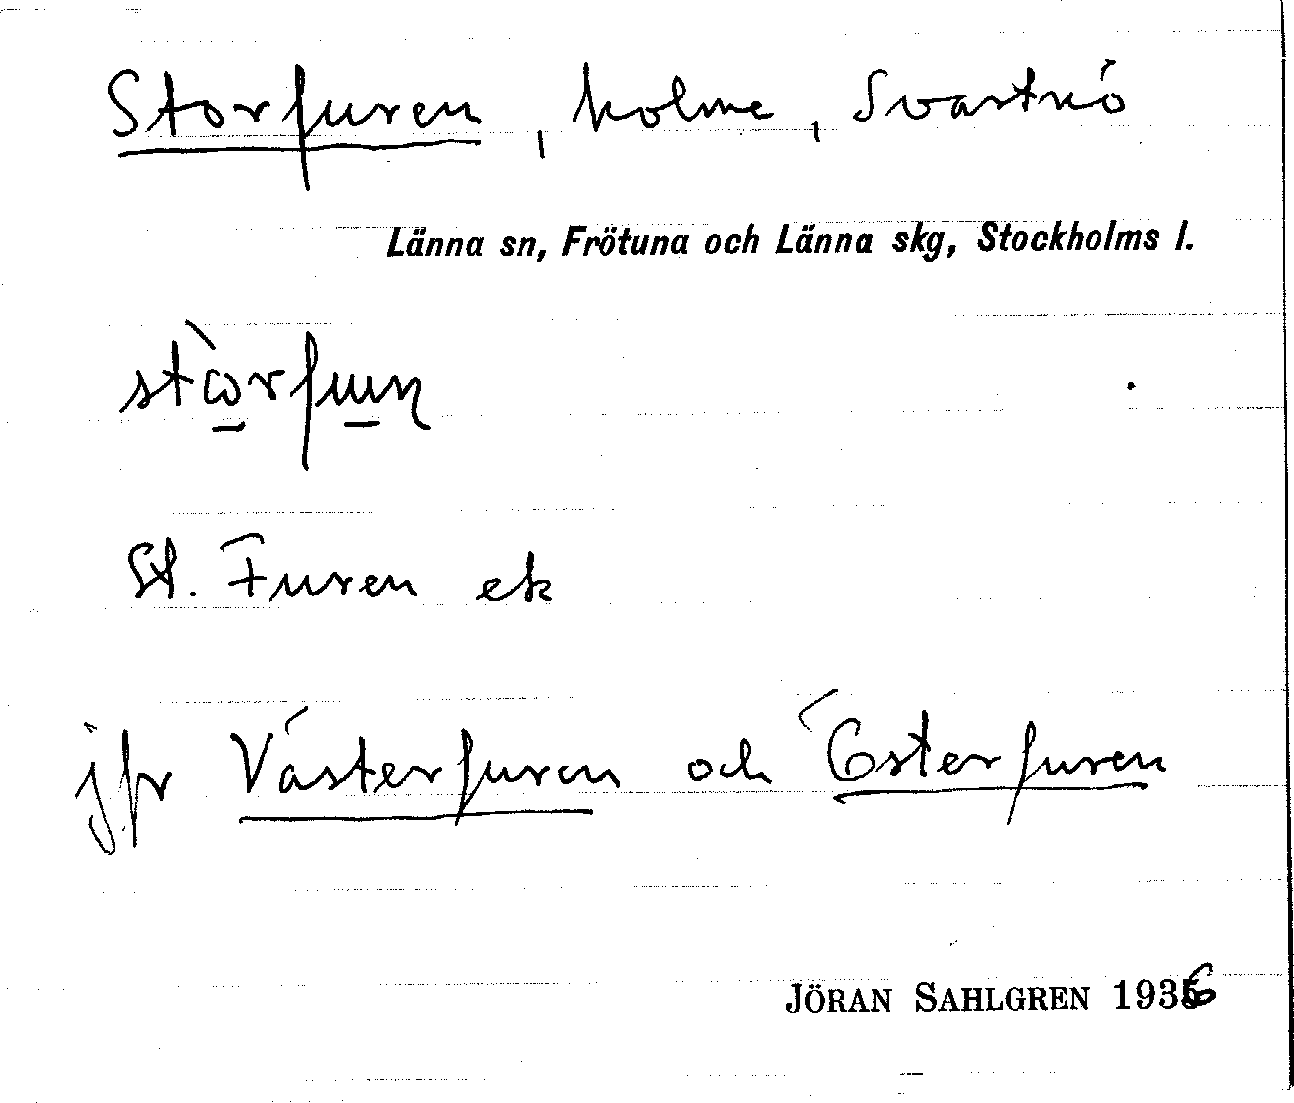 Storfuren, holme, Svartnö
Länna sn, Frötuna och Länna skg, Stockholms l.
St. Furen ek
jfr Västerfuren och Österfuren
JÖRAN SAHLGREN 1936